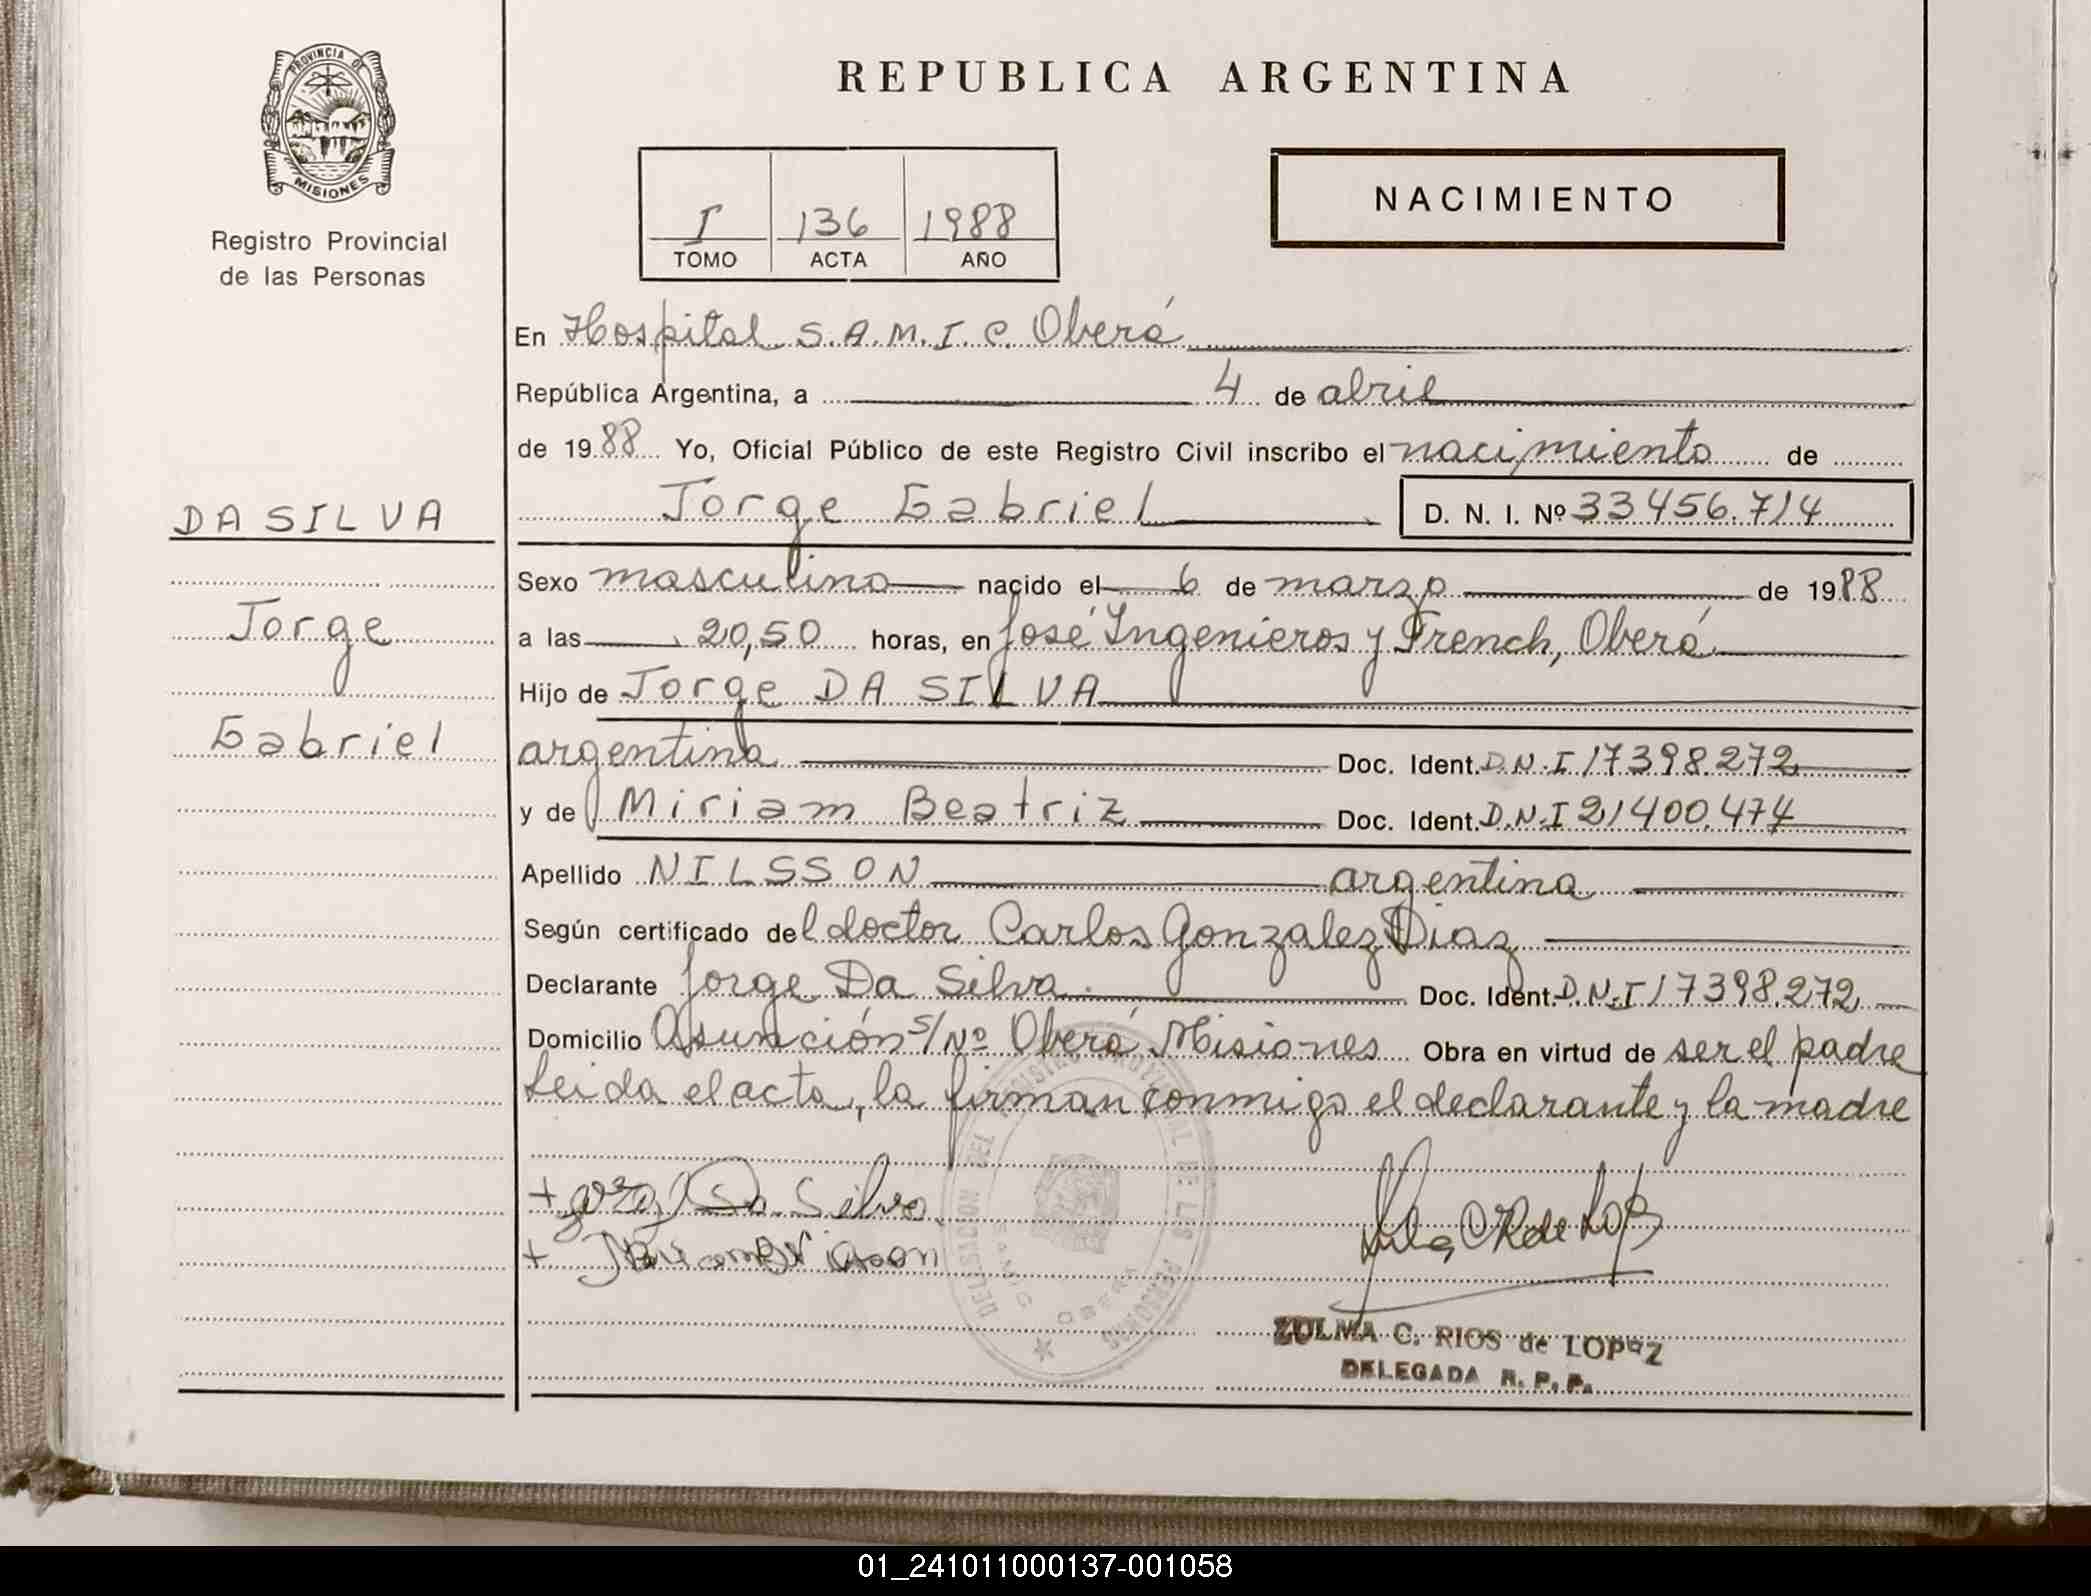 PROVINCIA DE
MISIONES
Registro Provincial
de las Personas
DA SILVA
Jorge
Gabriel
REPUBLICA ARGENTINA
I 136 1988
TOMO ACTA AÑO
NACIMIENTO
En Hospital S.A.M.I.C. Oberá
República Argentina, a 4 de abril
de 1988 Yo, Oficial Público de este Registro Civil inscribo el nacimiento de
Jorge Gabriel D. N. I. Nº 33456.714
Sexo masculino nacido el 6 de marzo de 1988
a las 20,50 horas, en José Ingenieros y French, Oberá
Hijo de Jorge DA SILVA
argentina Doc. Ident. D.N.I 17398.272
y de Miriam Beatriz Doc. Ident. D.N.I 21400.474
Apellido NILSSON argentina
Según certificado del doctor Carlos Gonzalez Diaz
Declarante Jorge Da Silva Doc. Ident. D.N.I 17398.272
Domicilio Asunción s/Nº Oberá Misiones Obra en virtud de ser el padre
Leida el acta, la firman conmigo el declarante y la madre
+ Da Silva
+
ZULMA C. RIOS de LOPEZ
DELEGADA R. P. P.
01_241011000137-001058